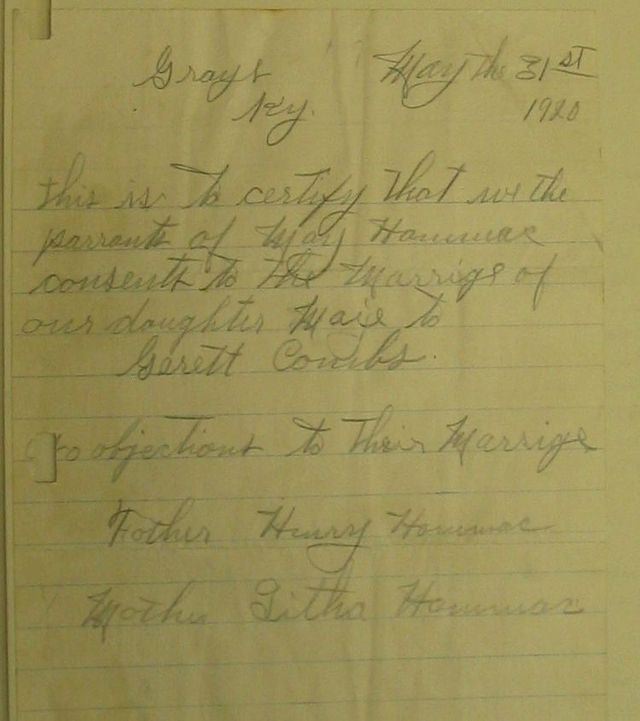 Grays May the 31st
Ky. 1920
this is to certify that we the
parrants of May Hammac
consents to the Marrige of
our daughter Maie to
Gerett Combs.
No objections to their Marrige
Father Henry Hammac
Mother Litha Hammac